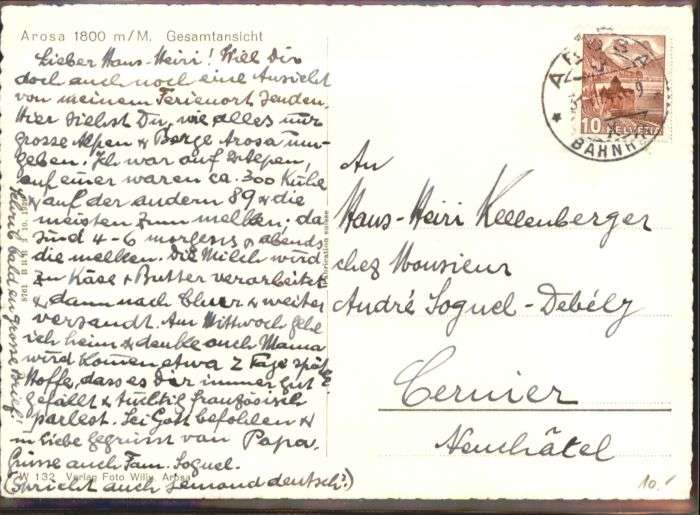 Arosa 1800 m/M. Gesamtansicht
Lieber Hans-Heiri! Will Dir
doch auch noch eine Ansicht
von meinem Ferienort senden.
Hier siehst Du, wie alles nur
grosse Alpen & Berge Arosa um-
geben. Ich war auf 2 Alpen,
auf einer waren ca. 300 Kühe
& auf der andern 89 & die
meisten zum melken; da
sind 4-6 morgens & abends
die melken. Die Milch wird
zu Käse & Butter verarbeitet
& dann nach Chur & weiter
versandt. Am Mittwoch gehe
ich heim & denke auch Mama
wird kommen etwa 2 Tage spät
Hoffe, dass es Dir immer gut
gefällt & tüchtig französisch
parlest. Sei Gott befohlen &
in Liebe gegrüsst von Papa.
Grüsse auch Fam. Soguel.
(Spricht auch jemand deutsch?)
bald en grosse Brief!
W 132 Verlag Foto Willy, Arosa
Fabrication suisse
AROSA
BAHNH
10 HELVETIA
An
Hans-Heiri Kellenberger
chez Monsieur
André Soguel-Debély
Cernier
Neuchâtel
10.-